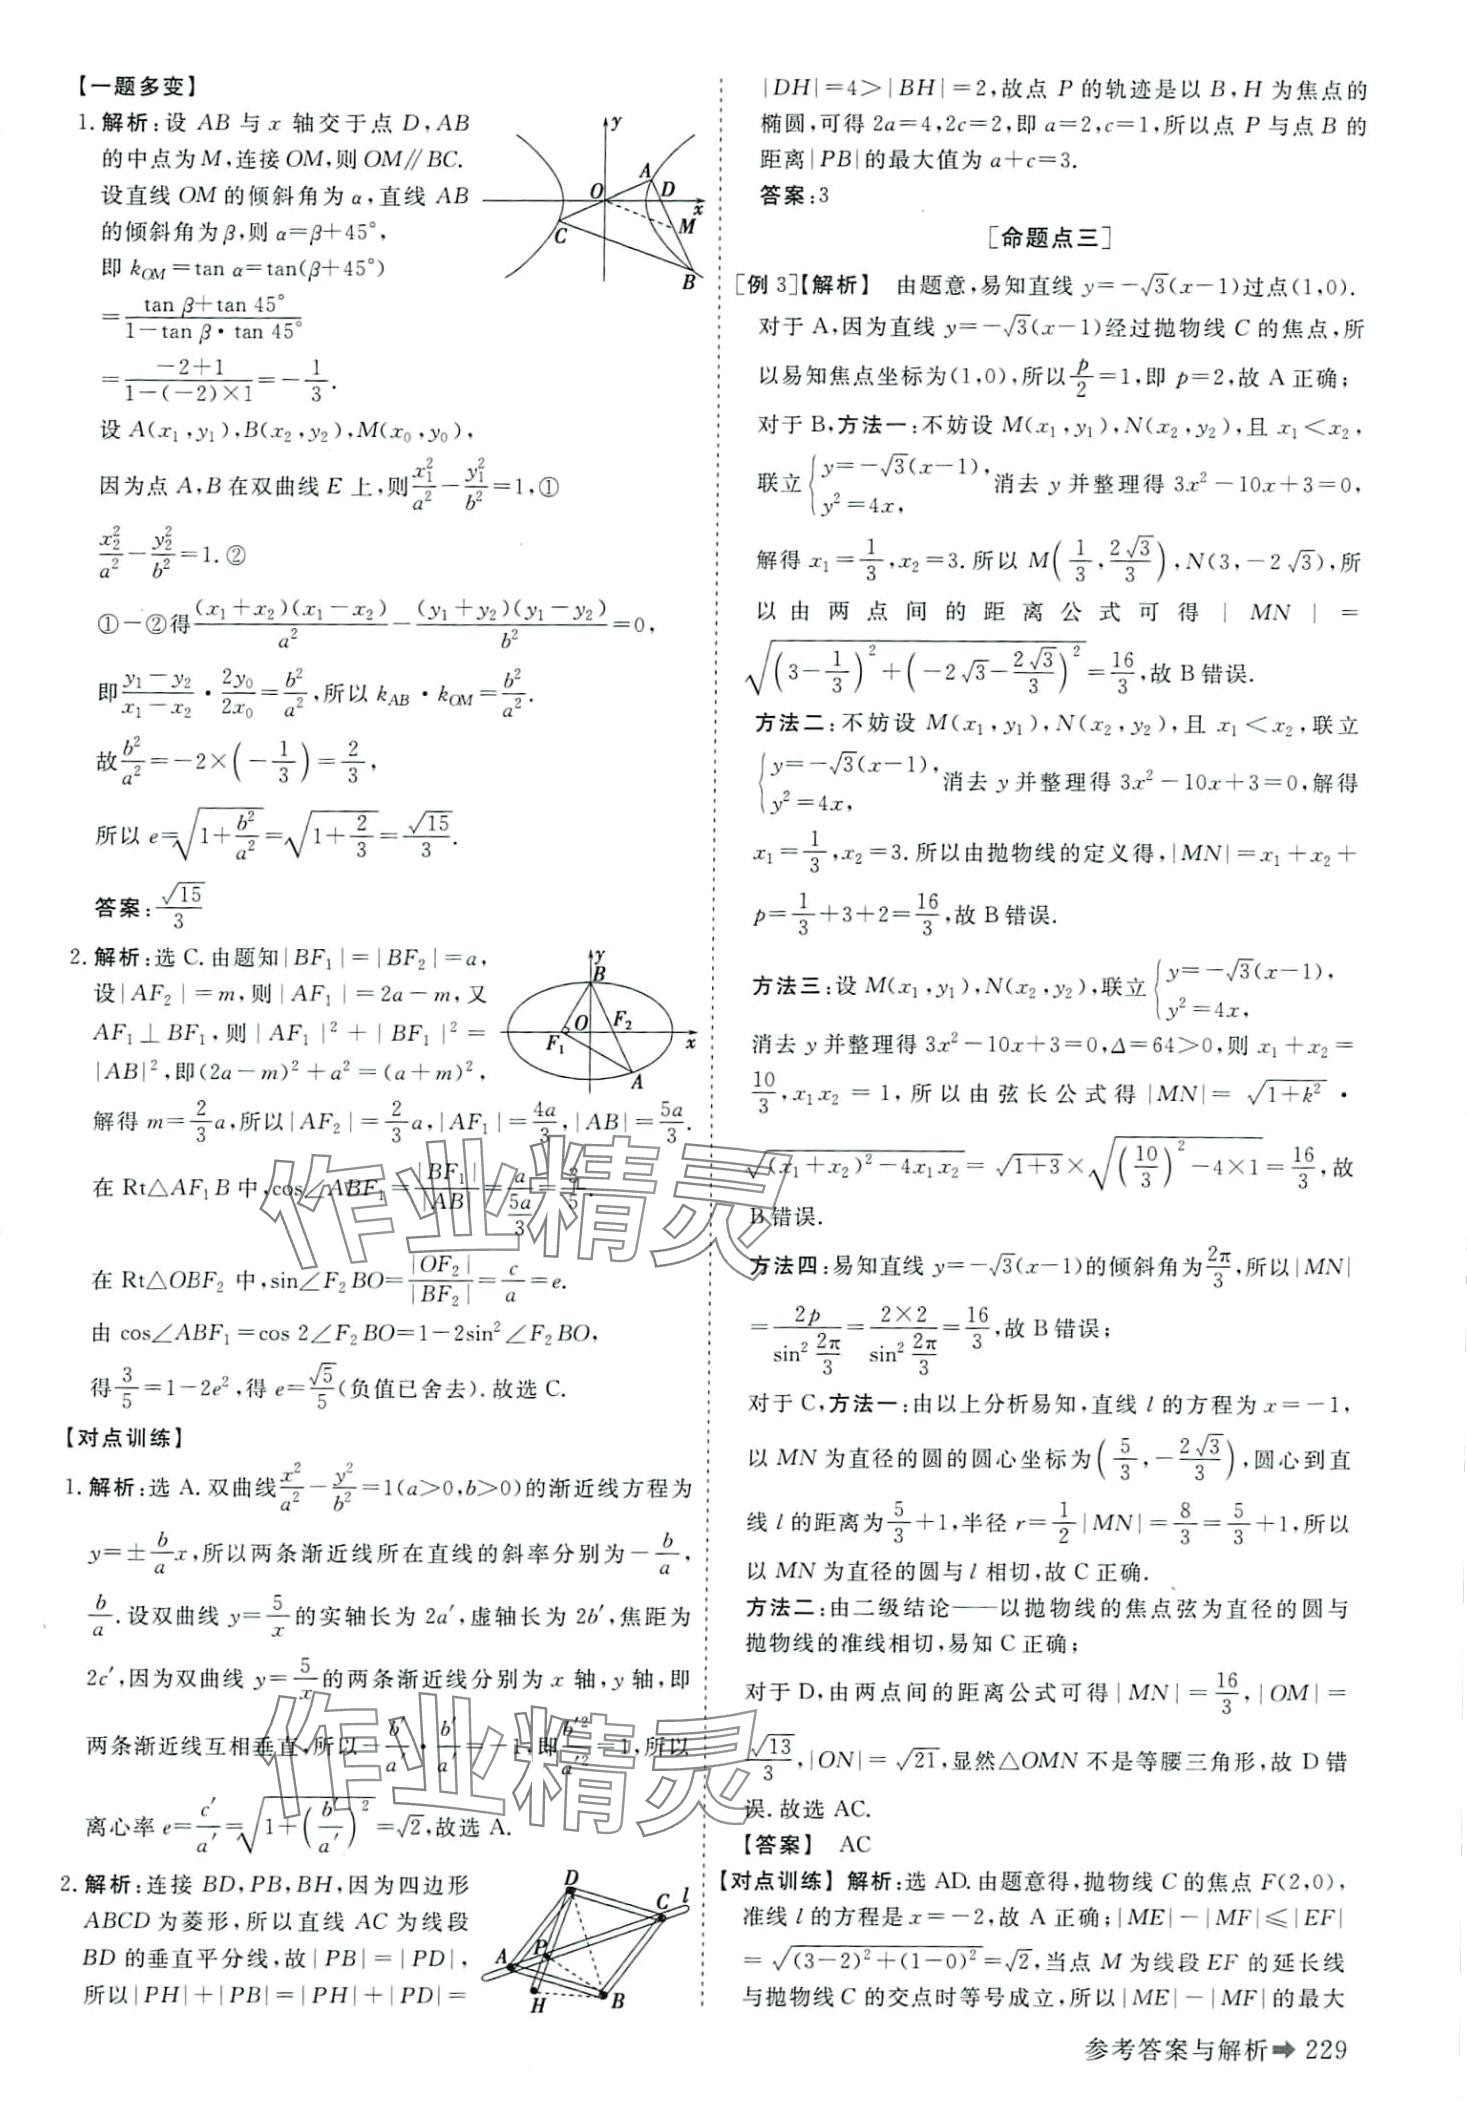 【一题多变】
1. 解析:设 AB 与 x 轴交于点 D,AB
的中点为 M,连接 OM,则 OM∥BC.
设直线 OM 的倾斜角为 α,直线 AB
的倾斜角为 β,则 α=β+45°,
即 k_OM=tan α=tan(β+45°)
=(tan β+tan 45°)/(1-tan β·tan 45°)
=(-2+1)/(1-(-2)×1)=-1/3.
设 A(x₁,y₁),B(x₂,y₂),M(x₀,y₀),
因为点 A,B 在双曲线 E 上,则x₁²/a²-y₁²/b²=1,①
x₂²/a²-y₂²/b²=1.②
①-②得(x₁+x₂)(x₁-x₂)/a²-(y₁+y₂)(y₁-y₂)/b²=0,
即(y₁-y₂)/(x₁-x₂)·2y₀/2x₀=b²/a²,所以 k_AB·k_OM=b²/a².
故b²/a²=-2×(-1/3)=2/3,
所以 e=√(1+b²/a²)=√(1+2/3)=√15/3.
答案:√15/3
y
A
O
D
x
C
M
B
2. 解析:选 C.由题知|BF₁|=|BF₂|=a,
设|AF₂|=m,则|AF₁|=2a-m,又
AF₁⊥BF₁,则|AF₁|²+|BF₁|²=
|AB|²,即(2a-m)²+a²=(a+m)²,
解得 m=2/3a,所以|AF₂|=2/3a,|AF₁|=4a/3,|AB|=5a/3.
在 Rt△AF₁B 中,cos∠ABF₁=|BF₁|/|AB|=a/(5a/3)=3/5.
在 Rt△OBF₂ 中,sin∠F₂BO=|OF₂|/|BF₂|=c/a=e.
由 cos∠ABF₁=cos 2∠F₂BO=1-2sin²∠F₂BO,
得3/5=1-2e²,得 e=√5/5(负值已舍去).故选 C.
y
B
O
F₂
F₁
x
A
【对点训练】
1. 解析:选 A.双曲线x²/a²-y²/b²=1(a>0,b>0)的渐近线方程为
y=±b/a x,所以两条渐近线所在直线的斜率分别为-b/a,
b/a.设双曲线 y=5/x的实轴长为 2a′,虚轴长为 2b′,焦距为
2c′,因为双曲线 y=5/x的两条渐近线分别为 x 轴,y 轴,即
两条渐近线互相垂直,所以-b′/a′·b′/a′=-1,即b′²/a′²=1,所以
离心率 e=c′/a′=√(1+(b′/a′)²)=√2,故选 A.
2. 解析:连接 BD,PB,BH,因为四边形
ABCD 为菱形,所以直线 AC 为线段
BD 的垂直平分线,故|PB|=|PD|,
所以|PH|+|PB|=|PH|+|PD|=
D
C
l
P
A
H
B
|DH|=4>|BH|=2,故点 P 的轨迹是以 B,H 为焦点的
椭圆,可得 2a=4,2c=2,即 a=2,c=1,所以点 P 与点 B 的
距离|PB|的最大值为 a+c=3.
答案:3
[命题点三]
[例 3]【解析】 由题意,易知直线 y=-√3(x-1)过点(1,0).
对于 A,因为直线 y=-√3(x-1)经过抛物线 C 的焦点,所
以易知焦点坐标为(1,0),所以p/2=1,即 p=2,故 A 正确;
对于 B,方法一:不妨设 M(x₁,y₁),N(x₂,y₂),且 x₁<x₂,
联立{y=-√3(x-1), y²=4x, 消去 y 并整理得 3x²-10x+3=0,
解得 x₁=1/3,x₂=3.所以 M(1/3,2√3/3),N(3,-2√3),所
以由两点间的距离公式可得|MN|=
√((3-1/3)²+(-2√3-2√3/3)²)=16/3,故 B 错误.
方法二:不妨设 M(x₁,y₁),N(x₂,y₂),且 x₁<x₂,联立
{y=-√3(x-1), y²=4x, 消去 y 并整理得 3x²-10x+3=0,解得
x₁=1/3,x₂=3.所以由抛物线的定义得,|MN|=x₁+x₂+
p=1/3+3+2=16/3,故 B 错误.
方法三:设 M(x₁,y₁),N(x₂,y₂),联立{y=-√3(x-1), y²=4x,
消去 y 并整理得 3x²-10x+3=0,Δ=64>0,则 x₁+x₂=
10/3,x₁x₂=1,所以由弦长公式得|MN|=√(1+k²)·
√((x₁+x₂)²-4x₁x₂)=√(1+3)×√((10/3)²-4×1)=16/3,故
B 错误.
方法四:易知直线 y=-√3(x-1)的倾斜角为2π/3,所以|MN|
=2p/sin²(2π/3)=2×2/sin²(2π/3)=16/3,故 B 错误;
对于 C,方法一:由以上分析易知,直线 l 的方程为 x=-1,
以 MN 为直径的圆的圆心坐标为(5/3,-2√3/3),圆心到直
线 l 的距离为5/3+1,半径 r=1/2|MN|=8/3=5/3+1,所以
以 MN 为直径的圆与 l 相切,故 C 正确.
方法二:由二级结论——以抛物线的焦点弦为直径的圆与
抛物线的准线相切,易知 C 正确;
对于 D,由两点间的距离公式可得|MN|=16/3,|OM|=
√13/3,|ON|=√21,显然△OMN 不是等腰三角形,故 D 错
误.故选 AC.
【答案】 AC
【对点训练】 解析:选 AD.由题意得,抛物线 C 的焦点 F(2,0),
准线 l 的方程是 x=-2,故 A 正确;|ME|-|MF|≤|EF|
=√((3-2)²+(1-0)²)=√2,当点 M 为线段 EF 的延长线
与抛物线 C 的交点时等号成立,所以|ME|-|MF|的最大
参考答案与解析➡229
作业精灵
作业精灵